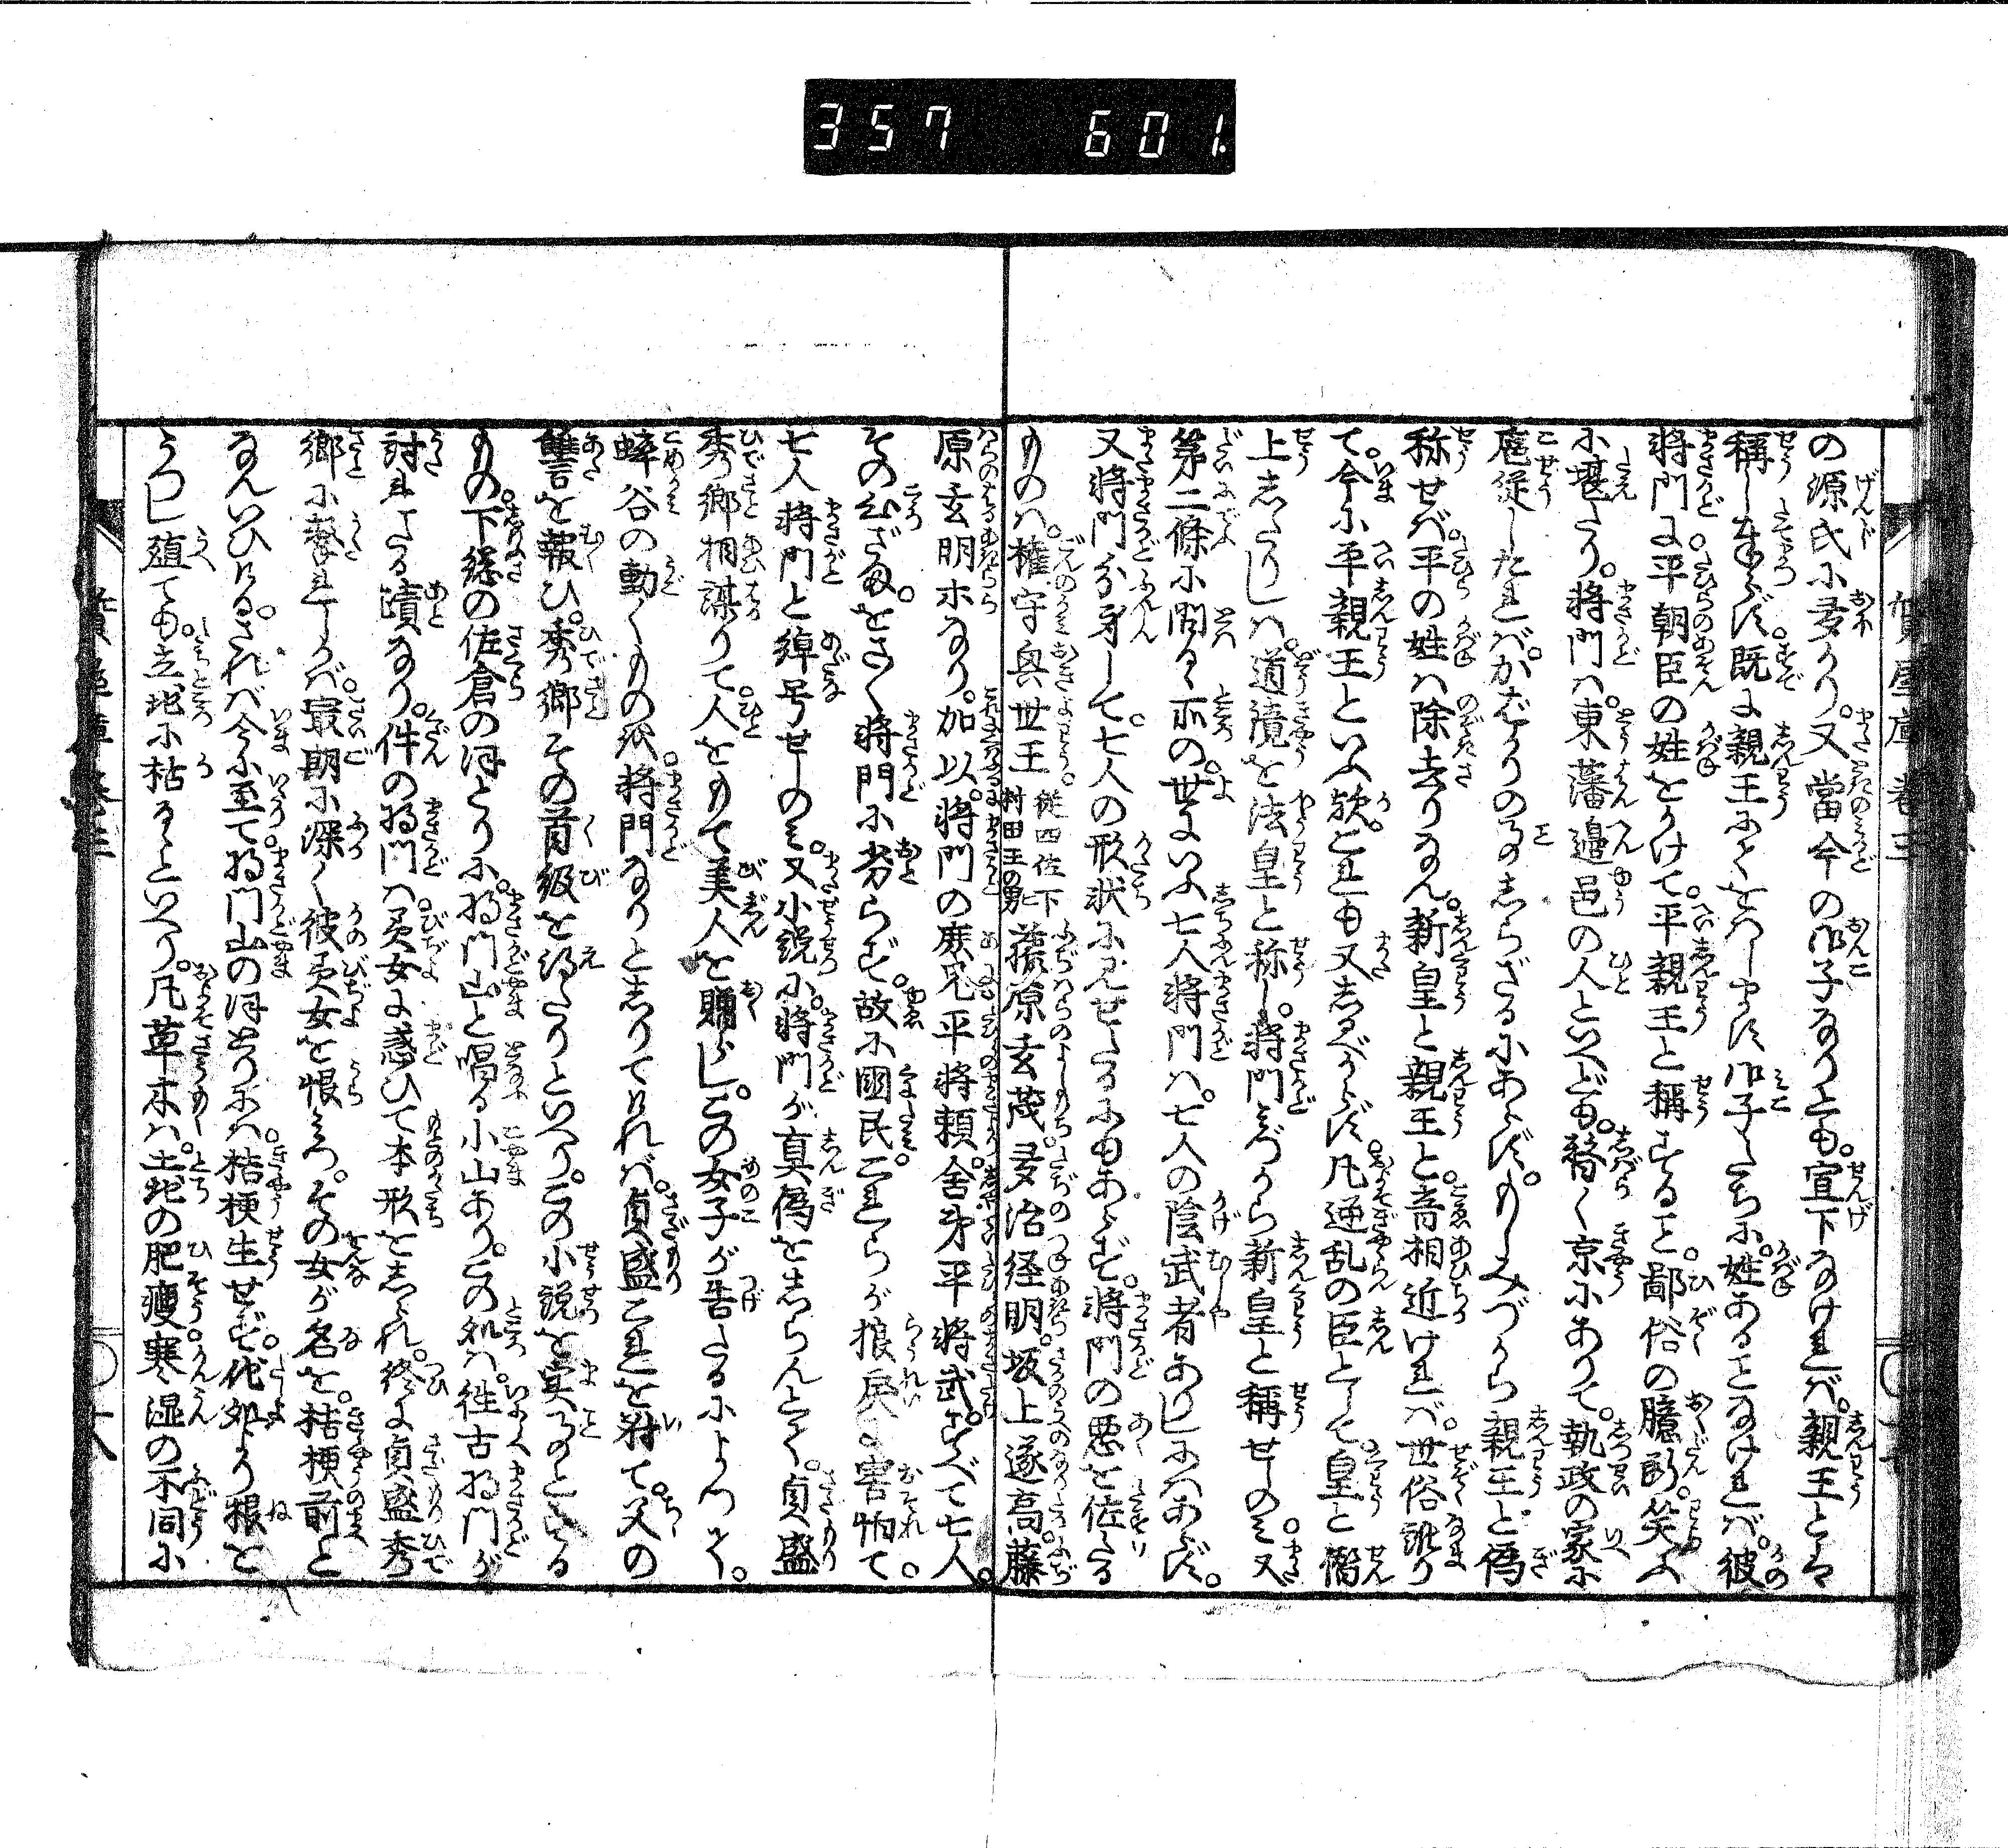 357 601
の源氏に多かり。又當今の御子なりとも。宣下なければ。親王とは
稱し奉らず。既に親王ふくをはします御子たちに。姓あることなければ。彼
將門に。平朝臣の姓をかけて。平親王と稱すること。鄙俗の臆断。笑ふ
に堪たり。將門は。東藩邉邑の人といへども。暫く京にありて。執政の家に
扈従したれば。かばかりの事をしらざるにあらず。もしみづから親王と偽
称せば。平の姓は除去りなん。新皇と親王と。音相近ければ。世俗訛り
て。今に平親王といふ歟。これも又しるべからず。凡逆乱の臣として。皇と僭
上したりしは。道鏡を法皇と称し。將門みづから新皇と稱せしのミ。又
第二條に問る所の。世にいふ七人將門は。七人の陰武者ありしにはあらず。
又將門分身して。七人の形状に見せたるにもあらず。將門の悪を佐たる
ものは。權守興世王 従四位下村田王の男 藤原玄茂。多治経明。坂上遂高。藤
原玄明ホなり。加以。將門の庶兄平將頼。舎弟平將武。すべて七人。
その心ざま。をさ〳〵將門に劣らず。故に國民。これらが狼戻に害怕て。
七人將門と綽号せしのミ。又小説に。將門が真偽をしらんとて。貞盛
秀郷相謀りて。人をもて美人を贈らし。この女子が告たるによつて。
蟀谷の動くもの必。將門なりとしりてければ。貞盛これを射て。父の
讐を報ひ。秀郷その首級を得たりといへり。この小説を実事とする
もの。下総の佐倉のほとりに。将門山と唱る小山あり。この処は。往古将門が
討れたる蹟なり。件の将門は。美女に惑ひて本形をしられ。終に貞盛秀
郷に撃れしかば。最期に深く彼美女を恨みつ。その女が名を。桔梗前と
なんいひける。されば今に至て。将門山のほとりには。桔梗生せず。他郷より根を
うつし殖ても。立地に枯るといへり。凡草木は。土地の肥痩。寒湿の不同に